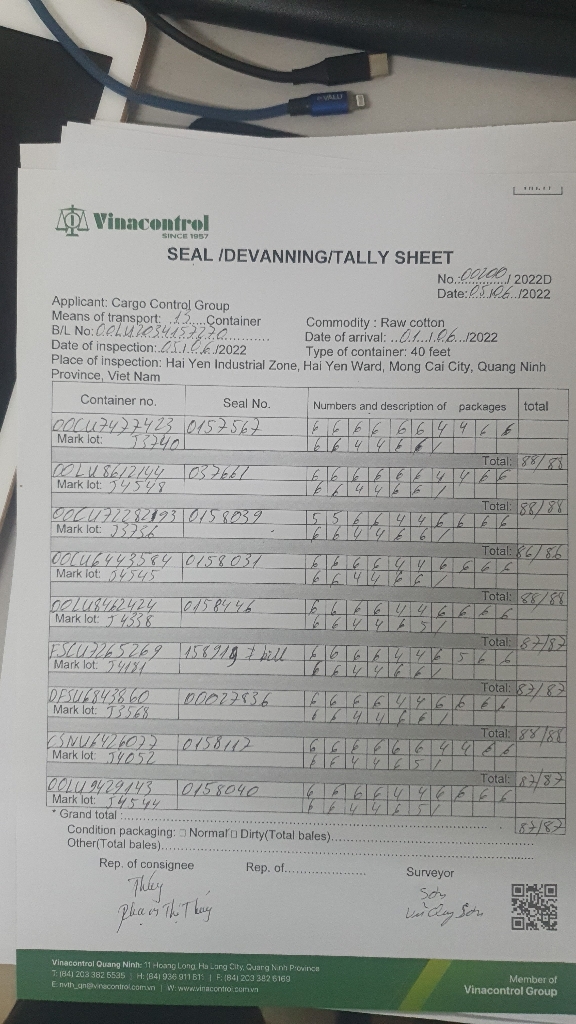 e-VALU
Vinacontrol
SINCE 1957
SEAL /DEVANNING/TALLY SHEET
No.:00200./ 2022D
Date:05/06../2022
Applicant: Cargo Control Group
Means of transport: ..13.....Container
Commodity : Raw cotton
B/L No:OOLU2034157270
Date of arrival: ..01../.06../2022
Date of inspection:.05./.06./2022
Type of container: 40 feet
Place of inspection: Hai Yen Industrial Zone, Hai Yen Ward, Mong Cai City, Quang Ninh
Province, Viet Nam
Container no. Seal No. Numbers and description of packages total
OOCU7477423 0157567 6 6 6 6 6 6 4 4 6 6
Mark lot: J3740 6 6 4 4 6 6 /
Total: 88/88
OOLU8612144 037661 6 6 6 6 6 6 4 4 6 6
Mark lot: J4548 6 6 4 4 6 6 /
Total: 88/88
0158039 5 5 6 6 4 4 6 6 6 6
Mark lot: J3736 6 6 4 4 6 6 /
Total: 86/86
OOCU6443584 0158031 6 6 6 6 4 4 6 6 6 6
Mark lot: J4545 6 6 4 4 6 6 /
Total: 88/88
OOLU8462424 0158446 6 6 6 6 4 4 6 6 6 6
Mark lot: J4338 6 6 4 4 6 5 /
Total: 87/87
FSCU7265269 + bill 6 6 6 6 4 4 6 5 6 6
Mark lot: J4181 6 6 4 4 6 6 /
Total: 87/87
DFSU6843860 00027836 6 6 6 6 4 4 6 6 6 6
Mark lot: J3568 6 6 4 4 6 6 /
Total: 88/88
CSNU6426077 0158112 6 6 6 6 6 6 4 4 6 6
Mark lot: J4052 6 6 4 4 6 5 /
Total: 87/87
OOLU9429143 0158040 6 6 6 6 4 4 6 6 6 6
Mark lot: J4544 6 6 4 4 6 5 /
* Grand total :
87/87
Condition packaging: □ Normal □ Dirty(Total bales)
Other(Total bales)
Rep. of consignee Rep. of Surveyor
Thúy Sơn
Phạm Thị Thúy Sơn
Vinacontrol Quang Ninh: 11 Hoang Long, Ha Long City, Quang Ninh Province
T: (84) 203 382 5535 | H: (84) 936 911 511 | F: (84) 203 382 6169
E: nvth_qn@vinacontrol.com.vn | W: www.vinacontrol.com.vn
Member of
Vinacontrol Group